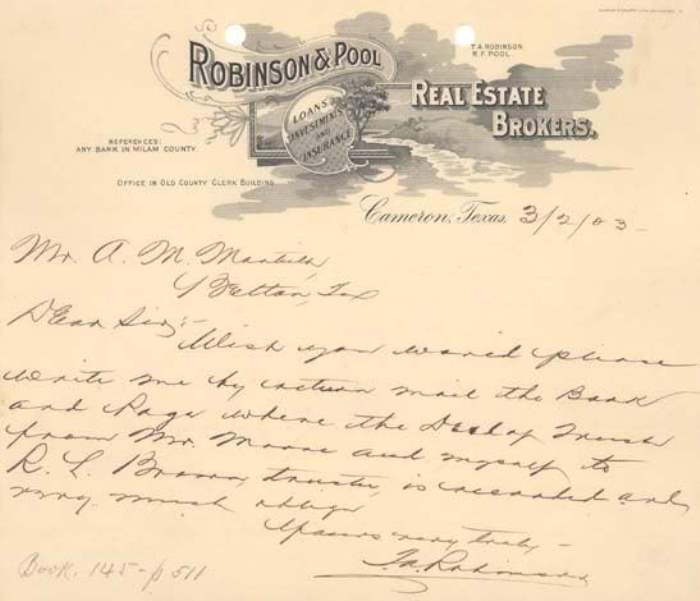 ROBINSON & POOL
T.A. ROBINSON
R.F. POOL.
REAL ESTATE
BROKERS.
LOANS,
INVESTMENTS
AND
INSURANCE.
REFERENCES:
ANY BANK IN MILAM COUNTY.
OFFICE IN OLD COUNTY CLERK BUILDING
Cameron, Texas, 3/2/03-
Mr. A. M.
Belton, Tex
Dear Sir;-
Wish you would please
write me by return mail the Book
and Page where the Deed of Trust
from Mr. Moore and myself to
R. L. Brown, trustee, is recorded and
very much oblige
Yours very truly-
T.A. Robinson
Book. 145-p 511